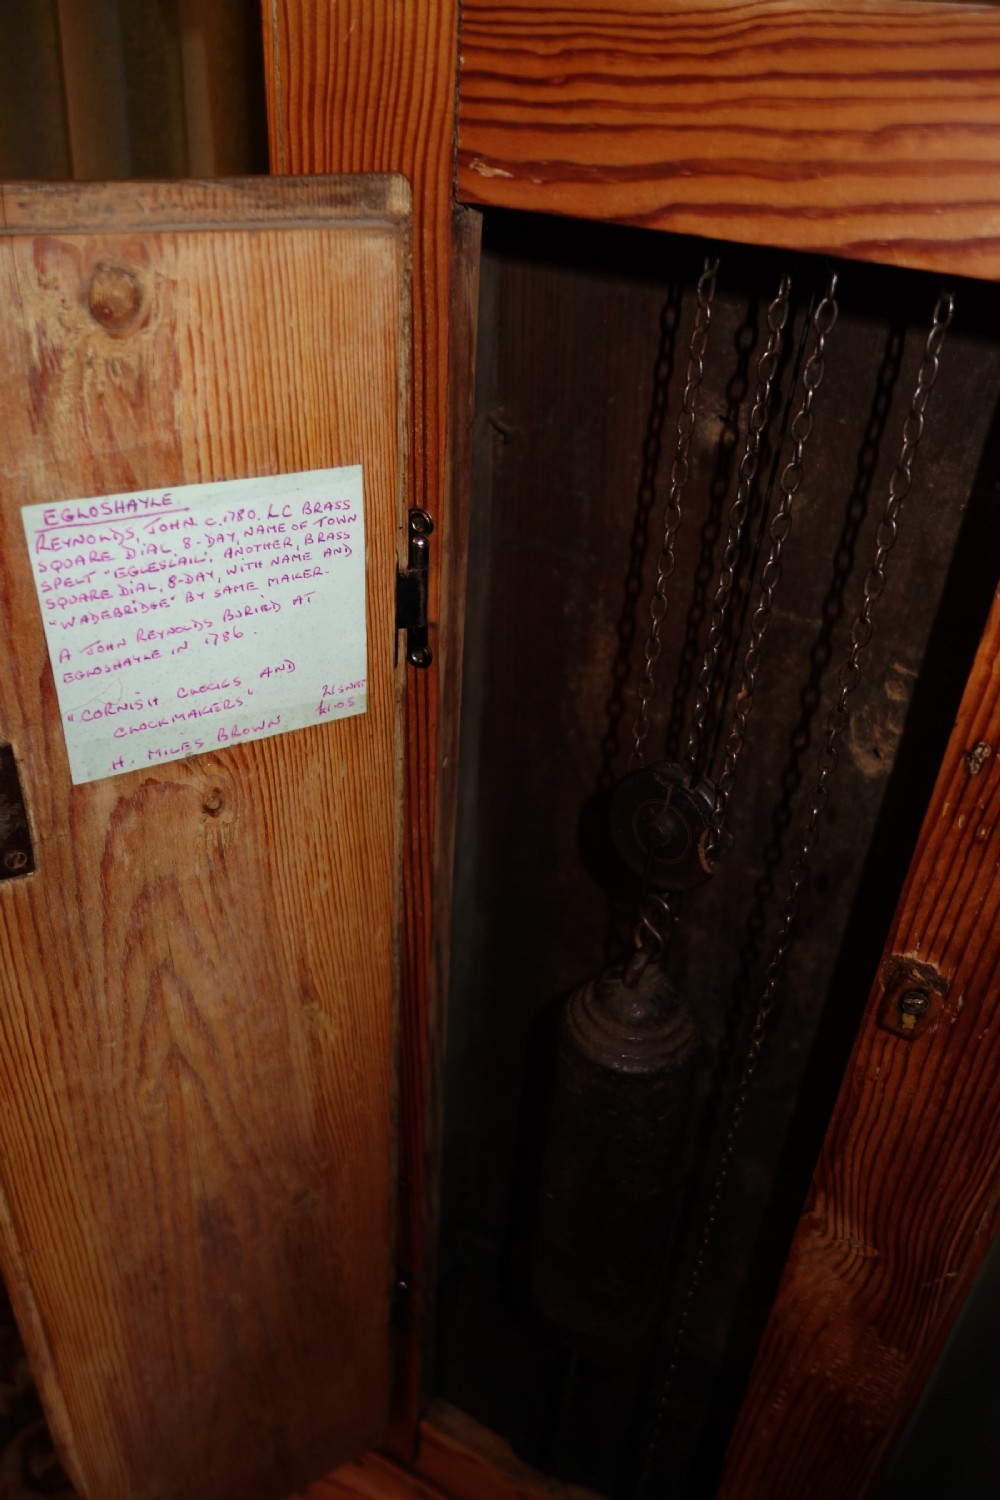 EGLOSHAYLE.
REYNOLDS, JOHN c.1780. LC BRASS
SQUARE DIAL, 8-DAY, NAME OF TOWN
SPELT "EGLESLAIL". ANOTHER, BRASS
SQUARE DIAL, 8-DAY, WITH NAME AND
"WADEBRIDGE" BY SAME MAKER.
A JOHN REYNOLDS BURIED AT
EGLOSHAYLE IN 1786.
"CORNISH CLOCKS AND
CLOCKMAKERS"
H. MILES BROWN